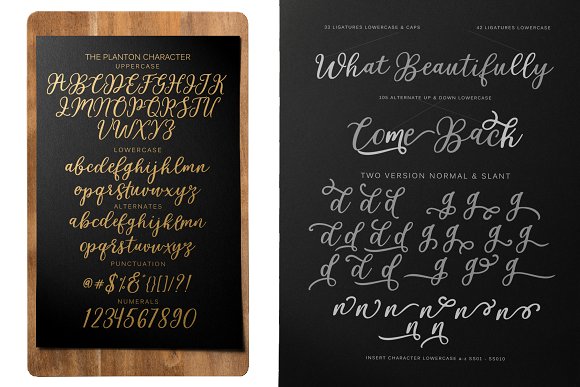 THE PLANTON CHARACTER
UPPERCASE
ABCDEFGHIJK
LMNOPQRST
UVWXYZ
LOWERCASE
abcdefghijklmn
opqrstuvwxyz
ALTERNATES
abcdefghijklmn
opqrstuvwxyz
PUNCTUATION
@#$%&*{}[]/?!
NUMERALS
1234567890
33 LIGATURES LOWERCASE & CAPS
42 LIGATURES LOWERCASE
What Beautifully
105 ALTERNATE UP & DOWN LOWERCASE
Come Back
TWO VERSION NORMAL & SLANT
d d d g g g
d d d d g g g g
d d d g g g
n n n n n n
n n
INSERT CHARACTER LOWERCASE a-z SS01 - SS010